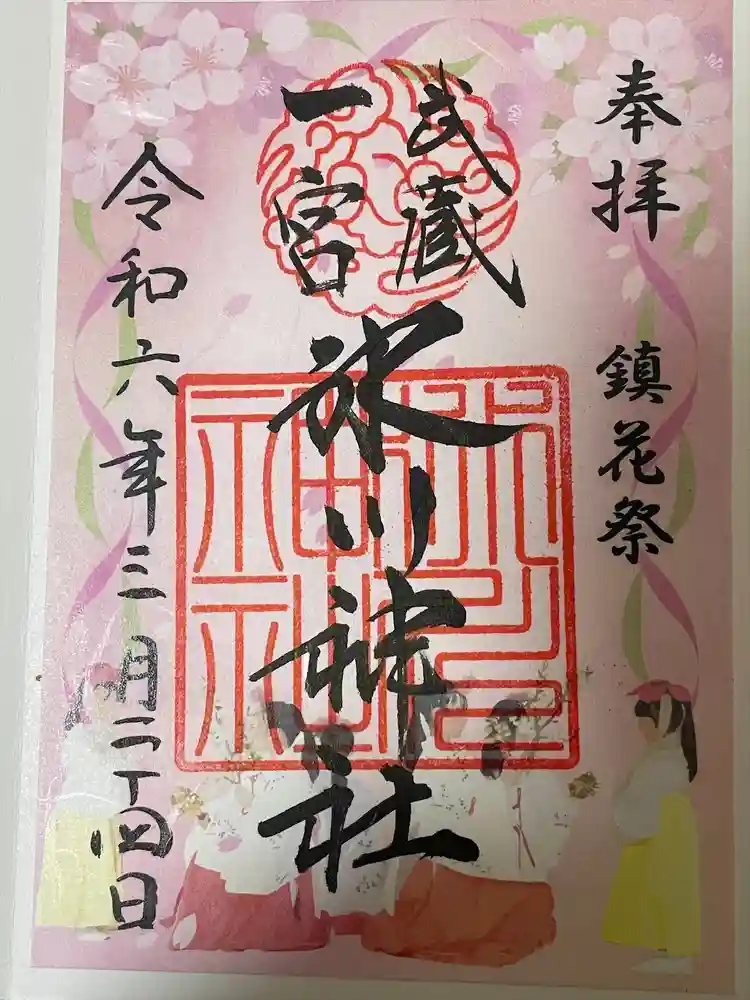 奉拝
鎮花祭
武蔵
一宮
氷川神社
令和六年三月二十四日